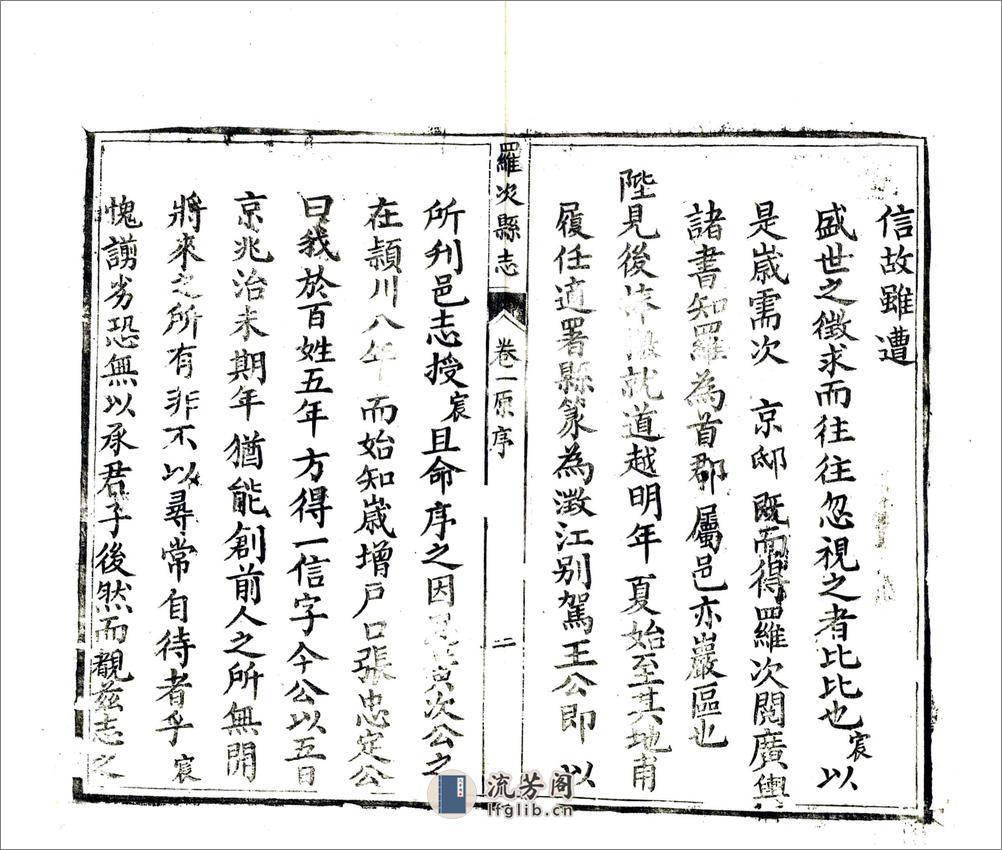 信故雖遭
盛世之徵求而往往忽視之者比比也宸以
是歲需次 京邸既而得羅次閱廣輿
諸書知羅為首郡屬邑亦巖區也
陛見後捧就道越明年夏始至其地甫
履任適署縣篆為澂江别駕王公即以
羅次縣志 卷一原序 二
所刋邑志授宸且命序之因寅次公之
在潁川八年而始知歲增戸口張忠定公
曰我於百姓五年方得一信字今公以五日
京兆治未期年猶能創前人之所無開
將來之所有非不以尋常自待者乎宸
愧謭劣恐無以承君子後然而觀兹志之
流芳阁
lfglib.cn